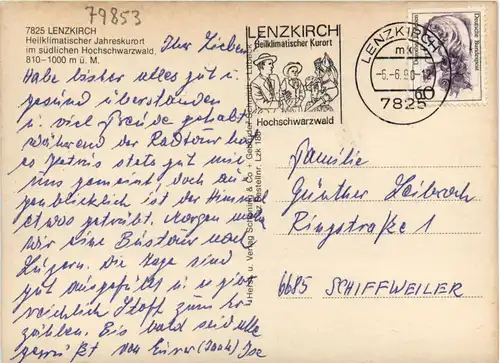 79853
7825 LENZKIRCH
Heilklimatischer Jahreskurort
im südlichen Hochschwarzwald,
810–1000 m ü. M.
Ihr Lieben
Habe bisher alles gut u.
gesund überstanden
u. viel Freude gehabt
während der Radtour hat
es Petrus stets gut mit
uns gemeint, doch au-
genblicklich ist der Himmel
etwas getrübt. Morgen wollen
wir eine Bustour nach
Luzern. Die Tage sind
gut ausgefüllt u. es gibt
reichlich Stoff zum er-
zählen. Bis bald seid alle
gegrüßt von Eurer
LENZKIRCH
Heilklimatischer Kurort
Hochschwarzwald
LENZKIRCH
-6.-6.90-12
7825
Deutsche Bundespost
60
Herst. u. Verlag Schöning & Co + Gebrüder Schmidt, Lübeck
Bestellnr. Lzk
Familie
Günther
Ringstraße 1
6685 SCHIFFWEILER